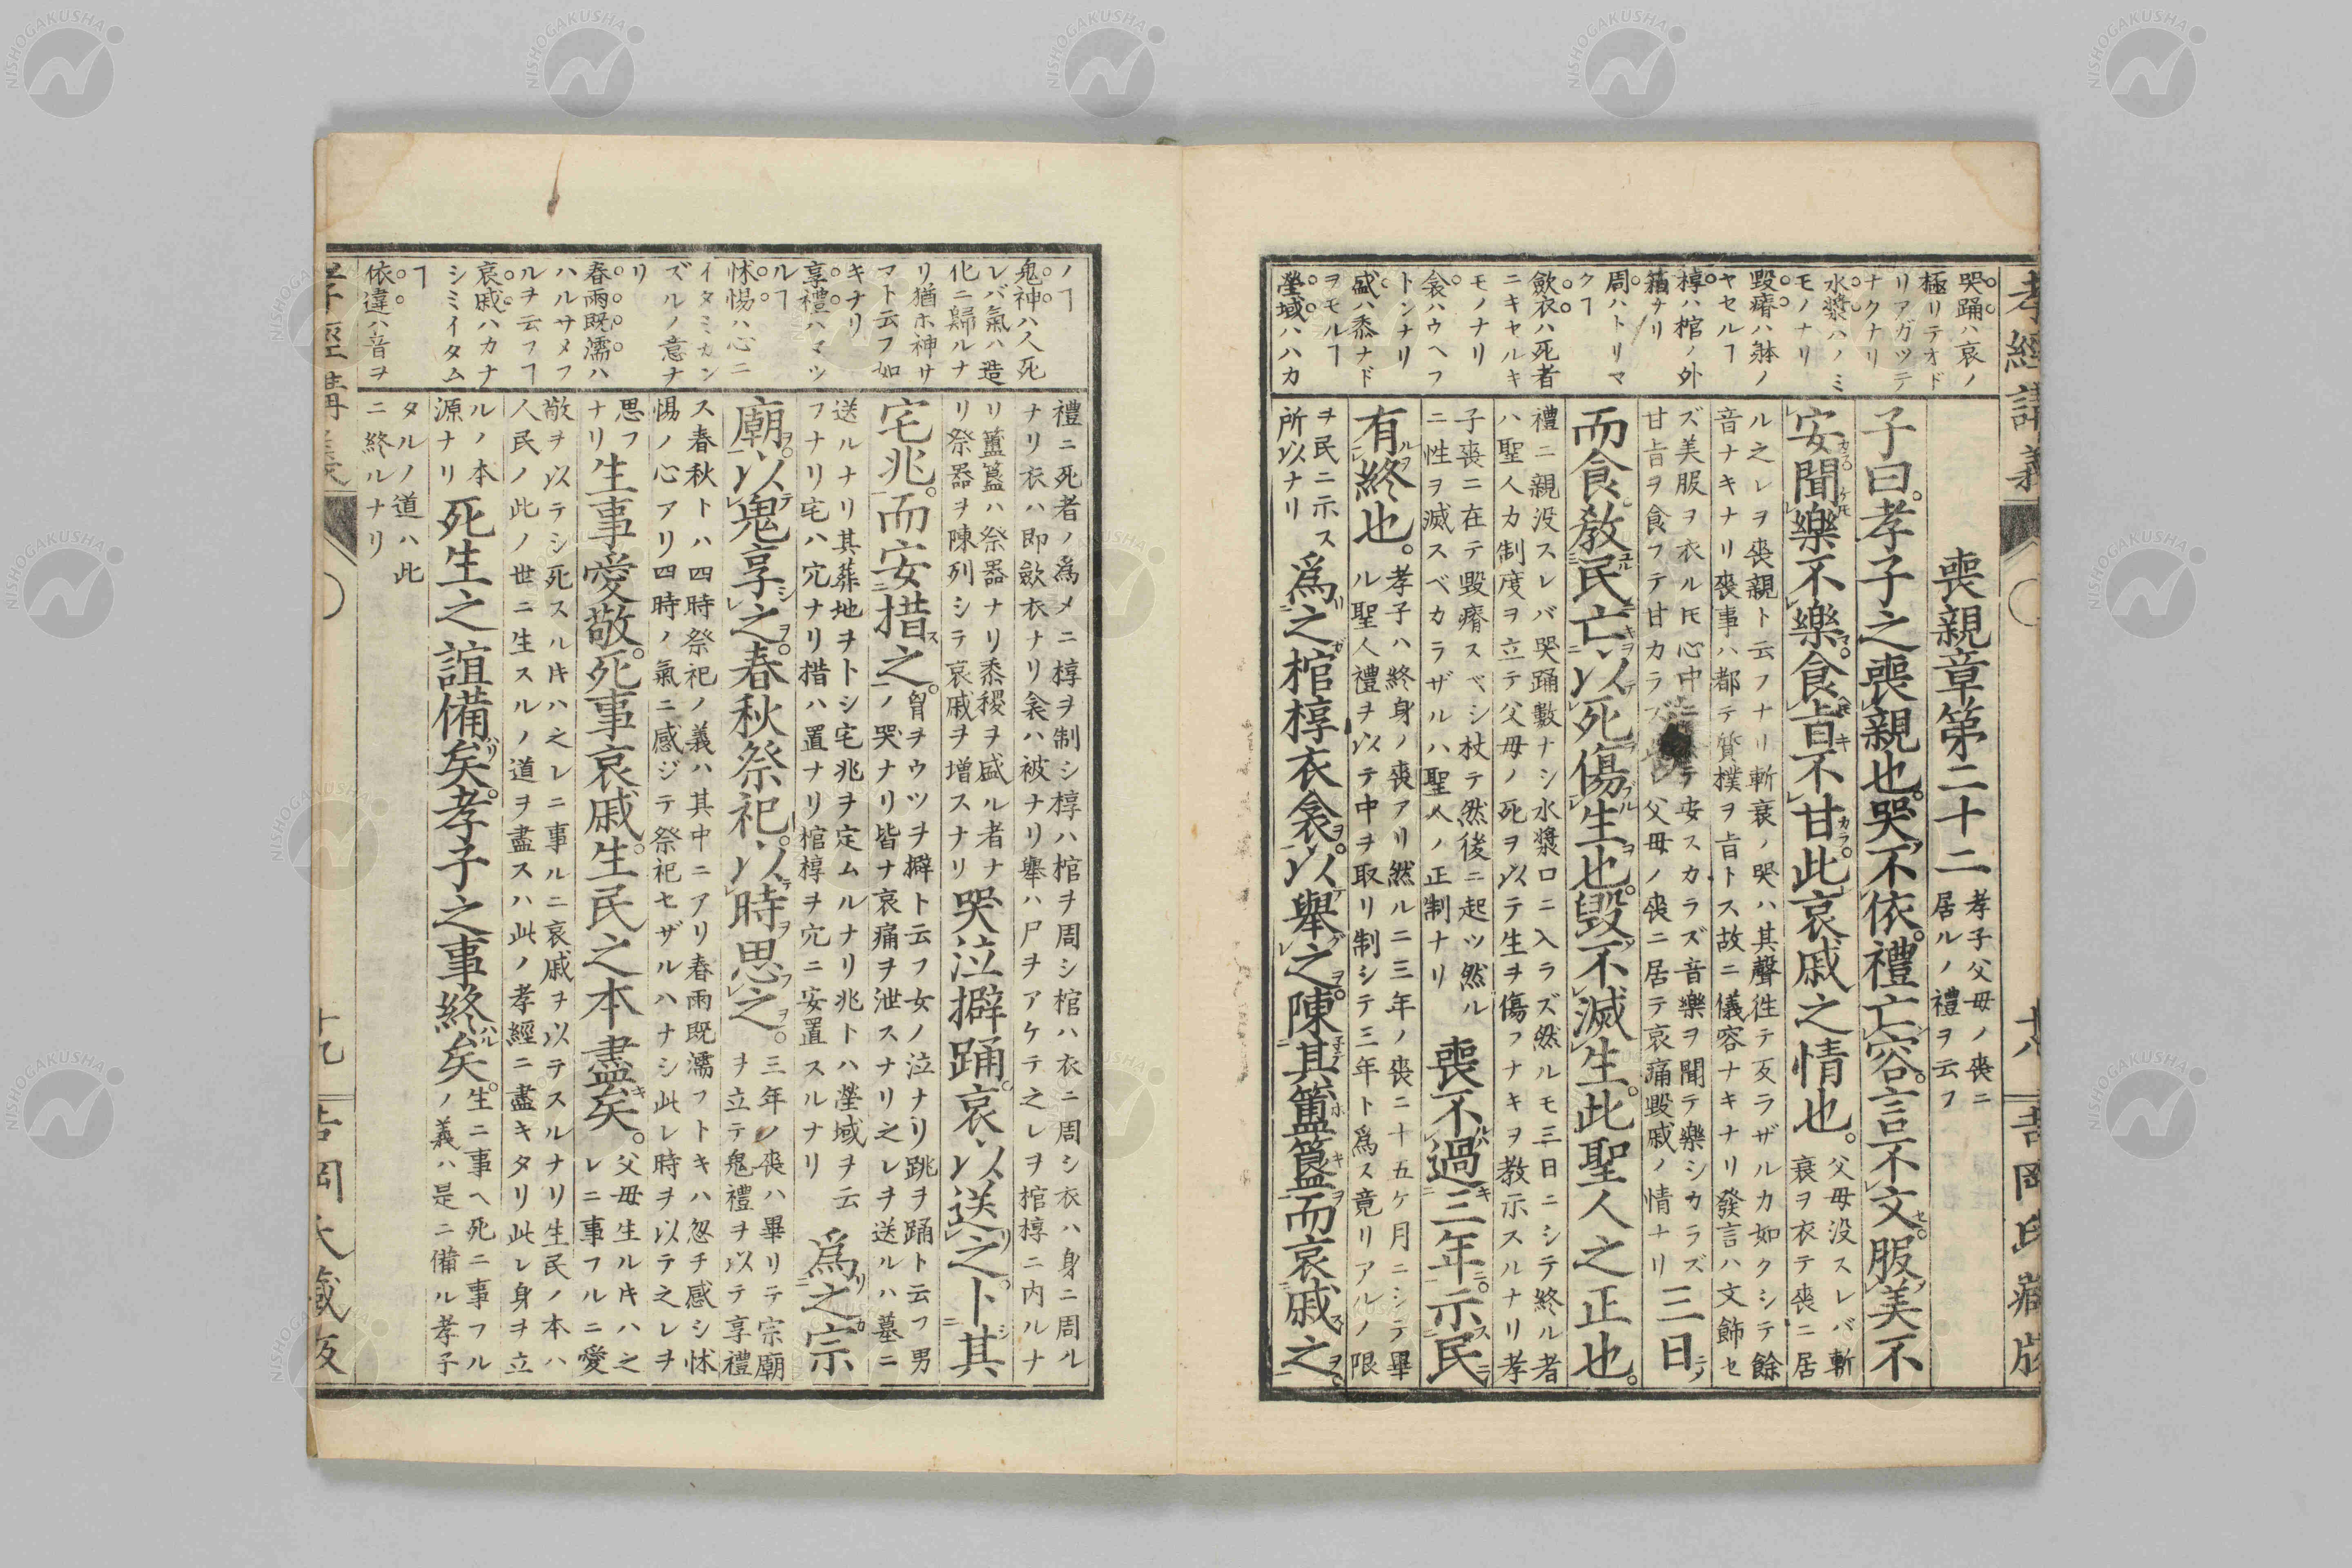 孝經講義
十八
吉岡氏藏版
哭踊ハ哀ノ
極リテオド
リアガツテ
ナクナリ
水漿ハノミ
モノナリ
毀瘠ハ躰ノ
ヤセルヿ
椁ハ棺ノ外
箱ナリ
周ハトリマ
クヿ
歛衣ハ死者
ニキヤルキ
モノナリ
衾ハウヘフ
トンナリ
盛ハ黍ナド
ヲモルヿ
塋域ハハカ
喪親章第二十二
孝子父母ノ喪ニ
居ルノ禮ヲ云フ
子曰。孝子之喪親也。哭不依。禮亡容。言不文。服美不
安。聞樂不樂。食旨不甘。此哀戚之情也。
父母没スレバ斬
衰ヲ衣テ喪ニ居
ル之レヲ喪親ト云フナリ斬衰ノ哭ハ其聲徃テ反ラザルカ如クシテ餘
音ナキナリ喪事ハ都テ質樸ヲ旨トス故ニ儀容ナキナリ發言ハ文飾セ
ズ美服ヲ衣ル𪜈心中ニ テ安スカラズ音樂ヲ聞テ樂シカラズ
甘旨ヲ食フテ甘カラズ 父母ノ喪ニ居テ哀痛毀戚ノ情ナリ
三日
而食。敎民亡以死傷生也。毀不滅生。此聖人之正也。
禮ニ親没スレバ哭踊數ナシ水漿口ニ入ラズ然ルモ三日ニシテ終ル者
ハ聖人カ制度ヲ立テ父母ノ死ヲ以テ生ヲ傷フナキヲ教示スルナリ孝
子喪ニ在テ毀瘠スベシ杖テ然後ニ起ツ然ル
ニ性ヲ滅スベカラザルハ聖人ノ正制ナリ
喪不過三年。示民
有終也。
孝子ハ終身ノ喪アリ然ルニ三年ノ喪ニ十五ケ月ニシテ畢
ル聖人禮ヲ以テ中ヲ取リ制シテ三年ト爲ス竟リアルノ限
ヲ民ニ示ス
所以ナリ
爲之棺椁衣衾。以舉之。陳其簠簋而哀戚之。
ノヿ
鬼神ハ人死
レバ氣ハ造
化ニ歸ルナ
リ猶ホ神サ
マト云フ如
キナリ
享禮ハマツ
ルヿ
怵惕ハ心ニ
イタミカン
ズルノ意ナ
リ
春雨既濡ハ
ハルサメフ
ルヲ云フヿ
哀戚ハカナ
シミイタム
ヿ
依違ハ音ヲ
禮ニ死者ノ爲メニ椁ヲ制シ椁ハ棺ヲ周シ棺ハ衣ニ周シ衣ハ身ニ周ル
ナリ衣ハ即歛衣ナリ衾ハ被ナリ舉ハ尸ヲアケテ之レヲ棺椁ニ内ルナ
リ簠簋ハ祭器ナリ黍稷ヲ盛ル者ナ
リ祭器ヲ陳列シテ哀戚ヲ增スナリ
哭泣擗踊。哀以送之。卜其
宅兆。而安措之。
胷ヲウツヲ擗ト云フ女ノ泣ナリ跳ヲ踊ト云フ男
ノ哭ナリ皆ナ哀痛ヲ泄スナリ之レヲ送ルハ墓ニ
送ルナリ其葬地ヲトシ宅兆ヲ定ムルナリ兆トハ塋域ヲ云
フナリ宅ハ穴ナリ措ハ置ナリ棺椁ヲ穴ニ安置スルナリ
爲之宗
廟。以鬼享之。春秋祭祀。以時思之。
三年ノ喪ハ畢リテ宗廟
ヲ立テ鬼禮ヲ以テ享禮
ス春秋トハ四時祭祀ノ義ハ其中ニアリ春雨既濡フトキハ忽チ感シ怵
惕ノ心アリ四時ノ氣ニ感ジテ祭祀セザルハナシ此レ時ヲ以テ之レヲ
思フ
ナリ
生事愛敬。死事哀戚。生民之本盡矣。
父母生ル𪜈ハ之
レニ事フルニ愛
敬ヲ以テシ死スル𪜈ハ之レニ事ルニ哀戚ヲ以テスルナリ生民ノ本ハ
人民ノ此ノ世ニ生スルノ道ヲ盡スハ此ノ孝經ニ盡キタリ此レ身ヲ立
ルノ本
源ナリ
死生之誼備矣。孝子之事終矣。
生ニ事ヘ死ニ事フル
ノ義ハ是ニ備ル孝子
タルノ道ハ此
ニ終ルナリ
孝經講義
十九
吉岡氏藏版